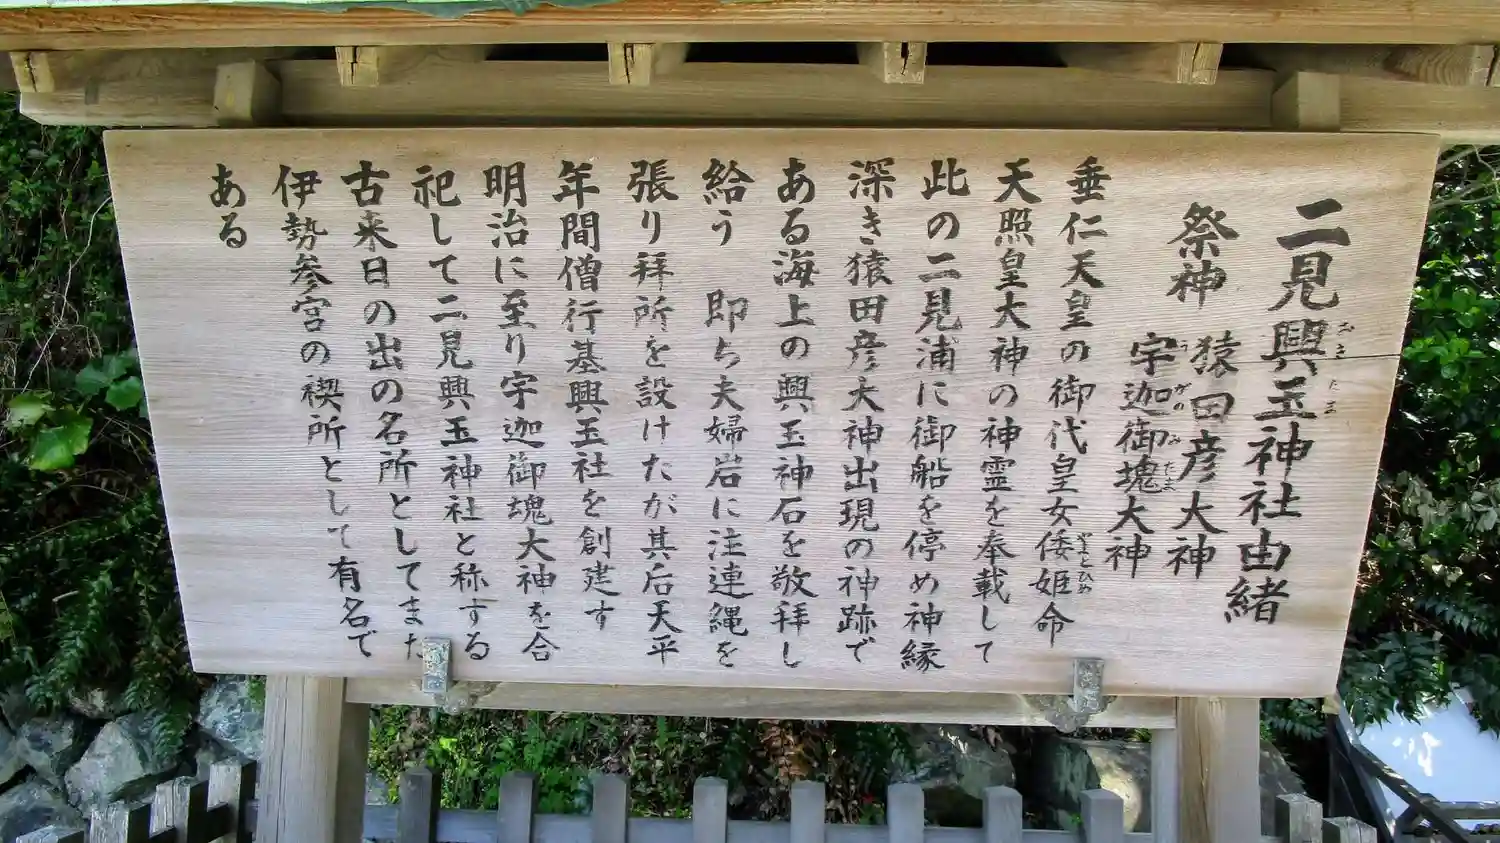 二見興玉神社由緒
おきたま
祭神 猿田彦大神
宇迦御塊大神
うがのみたま
垂仁天皇の御代皇女倭姫命
やまとひめ
天照皇大神の神霊を奉載して
此の二見浦に御船を停め神縁
深き猿田彦大神出現の神跡で
ある海上の興玉神石を敬拝し
給う 即ち夫婦岩に注連縄を
張り拝所を設けたが其后天平
年間僧行基興玉社を創建す
明治に至り宇迦御魂大神を合
祀して二見興玉神社と称する
古来日の出の名所としてまた
伊勢参宮の禊所として有名で
ある